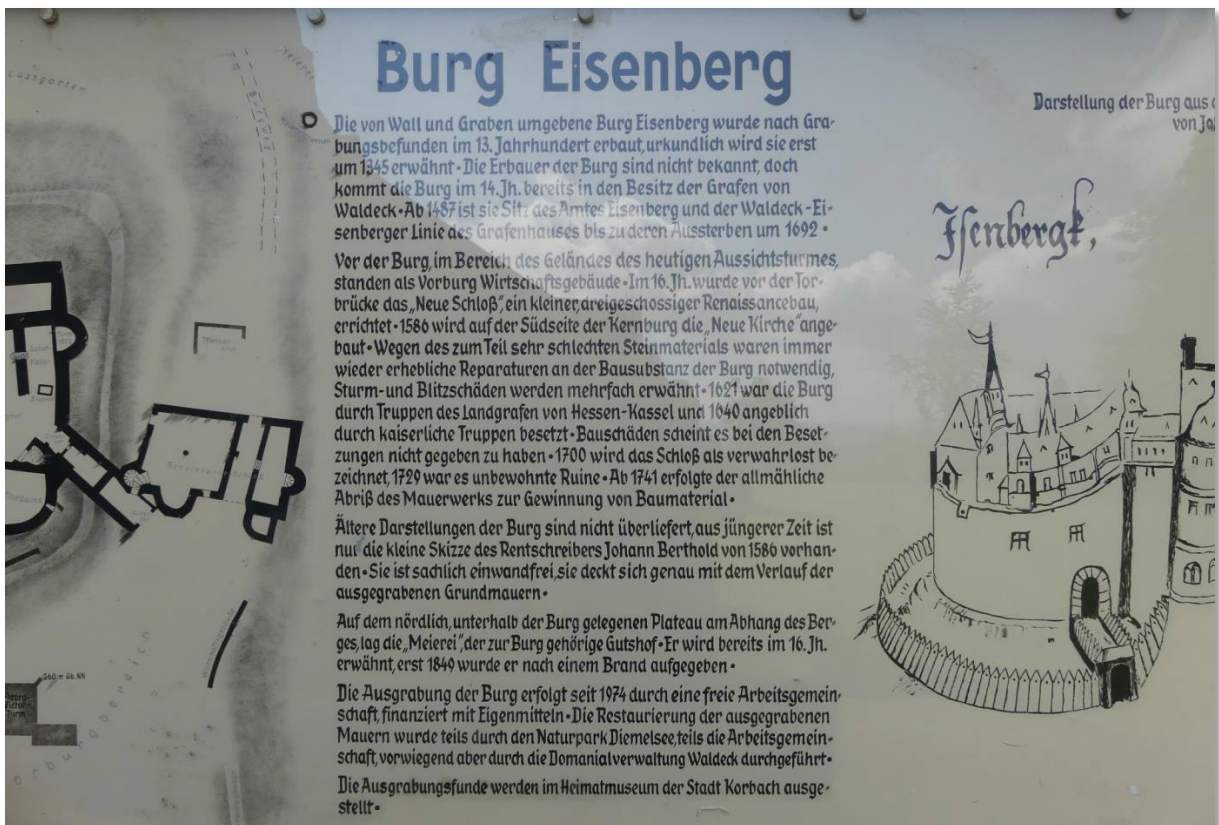 Burg Eisenberg
Die von Wall und Graben umgebene Burg Eisenberg wurde nach Gra-
bungsbefunden im 13. Jahrhundert erbaut, urkundlich wird sie erst
um 1345 erwähnt • Die Erbauer der Burg sind nicht bekannt, doch
kommt die Burg im 14. Jh. bereits in den Besitz der Grafen von
Waldeck • Ab 1487 ist sie Sitz des Amtes Eisenberg und der Waldeck-Ei-
senberger Linie des Grafenhauses bis zu deren Aussterben um 1692 •
Vor der Burg, im Bereich des Geländes des heutigen Aussichtsturmes,
standen als Vorburg Wirtschaftsgebäude • Im 16. Jh. wurde vor der Tor-
brücke das „Neue Schloß“, ein kleiner, dreigeschossiger Renaissancebau,
errichtet • 1586 wird auf der Südseite der Kernburg die „Neue Kirche“ ange-
baut • Wegen des zum Teil sehr schlechten Steinmaterials waren immer
wieder erhebliche Reparaturen an der Bausubstanz der Burg notwendig,
Sturm- und Blitzschäden werden mehrfach erwähnt • 1621 war die Burg
durch Truppen des Landgrafen von Hessen-Kassel und 1640 angeblich
durch kaiserliche Truppen besetzt • Bauschäden scheint es bei den Beset-
zungen nicht gegeben zu haben • 1700 wird das Schloß als verwahrlost be-
zeichnet, 1729 war es unbewohnte Ruine • Ab 1741 erfolgte der allmähliche
Abriß des Mauerwerks zur Gewinnung von Baumaterial •
Ältere Darstellungen der Burg sind nicht überliefert, aus jüngerer Zeit ist
nur die kleine Skizze des Rentschreibers Johann Berthold von 1586 vorhan-
den • Sie ist sachlich einwandfrei, sie deckt sich genau mit dem Verlauf der
ausgegrabenen Grundmauern •
Auf dem nördlich, unterhalb der Burg gelegenen Plateau am Abhang des Ber-
ges, lag die „Meierei“, der zur Burg gehörige Gutshof • Er wird bereits im 16. Jh.
erwähnt, erst 1849 wurde er nach einem Brand aufgegeben •
Die Ausgrabung der Burg erfolgt seit 1974 durch eine freie Arbeitsgemein-
schaft, finanziert mit Eigenmitteln • Die Restaurierung der ausgegrabenen
Mauern wurde teils durch den Naturpark Diemelsee, teils die Arbeitsgemein-
schaft, vorwiegend aber durch die Domanialverwaltung Waldeck durchgeführt •
Die Ausgrabungsfunde werden im Heimatmuseum der Stadt Korbach ausge-
stellt •
Darstellung der Burg aus
Isenbergk,
Lustgarten
360 m üb. NN
Georg-
Viktor-
Turm
orburgbereich